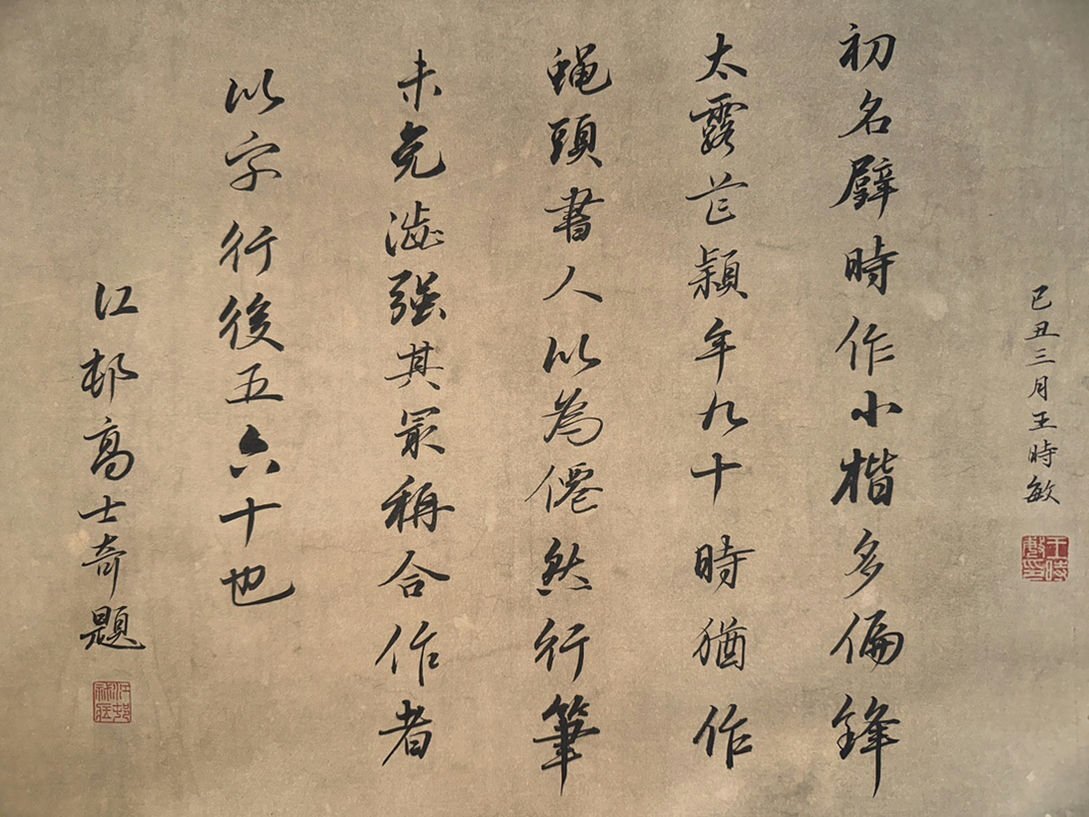 己丑三月王時敏
王時敏印
初名壁時作小楷多偏鋒
太露芒穎年九十時猶作
蠅頭書人以為僊然行筆
未免澁強其最稱合作者
以字行後五六十也
江邨高士奇題